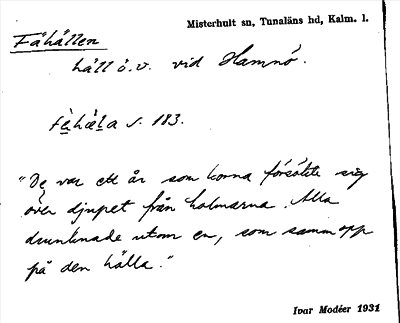 Misterhult sn, Tunaläns hd, Kalm. l.
Fähällen
häll ö.v. vid Hamnö.
s. 183.
"De var ett år som korna försökte sig
över djupet från holmarna. Alla
drunknade utom en, som samm opp
på den hälla."
Ivar Modéer 1931